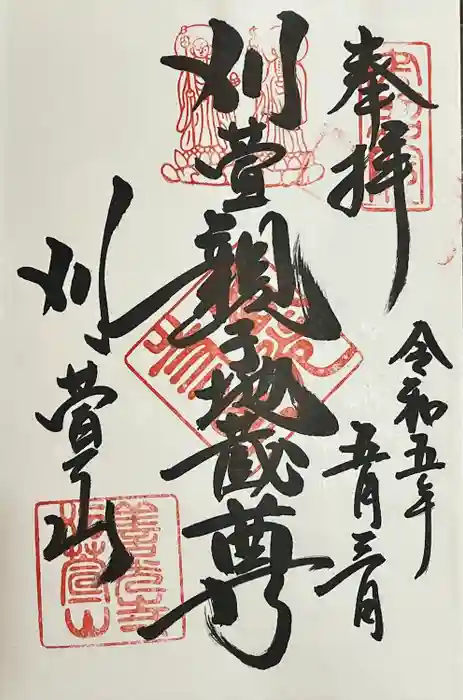 奉拝
令和五年
五月三日
刈萱親子地蔵尊
刈萱山